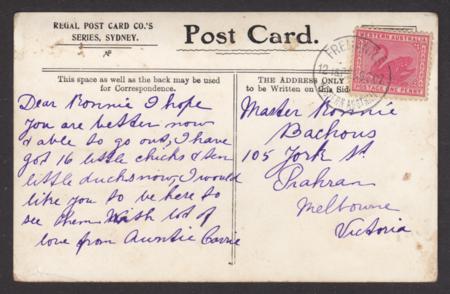 REGAL POST CARD CO.'S
SERIES, SYDNEY.
Post Card.
This space as well as the back may be used
for Correspondence.
THE ADDRESS ONLY
to be Written on this Side
WESTERN AUSTRALIA
POSTAGE ONE PENNY
Dear Ronnie I hope
you are better now
& able to go out, I have
got 16 little chicks & ten
little ducks now, I would
like you to be here to
see them. With lot of
love from Auntie Carrie
Master Ronnie
Bachous
105 York St
Prahran
Melbourne
Victoria